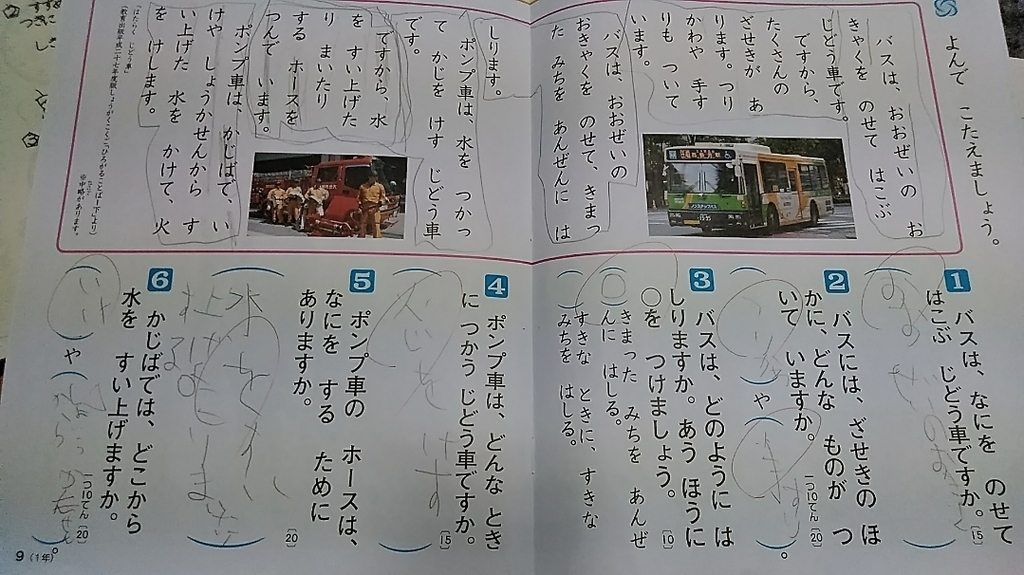 よんで こたえましょう。
バスは、おおぜいの お
きゃくを のせて はこぶ
じどう車です。
ですから、
たくさんの
ざせきが あ
ります。つり
かわや 手す
りも ついて
います。
バスは、おおぜいの
おきゃくを のせて、きまっ
た みちを あんぜんに は
しります。
ポンプ車は、水を つかっ
て かじを けす じどう車
です。
ですから、水
を すい上げた
り まいたり
する ホースを
つんで います。
ポンプ車は、かじばで、い
けや しょうかせんから す
い上げた 水を かけて、火
を けします。
「はたらく じどう車」
※中略があります。
1 バスは、なにを のせて
はこぶ じどう車ですか。
[15]
2 バスには、ざせきの ほ
かに、どんな ものが つ
いて いますか。
一つ10てん[20]
や
3 バスは、どのように は
しりますか。あう ほうに
○を つけましょう。
[10]
○ きまった みちを あんぜ
んに はしる。
すきな ときに、すきな
みちを はしる。
4 ポンプ車は、どんな とき
に つかう じどう車ですか。
[15]
かじを けす
5 ポンプ車の ホースは、
なにを する ために
ありますか。
[20]
6 かじばでは、どこから
水を すい上げますか。
一つ10てん[20]
いけ や
9(1年)